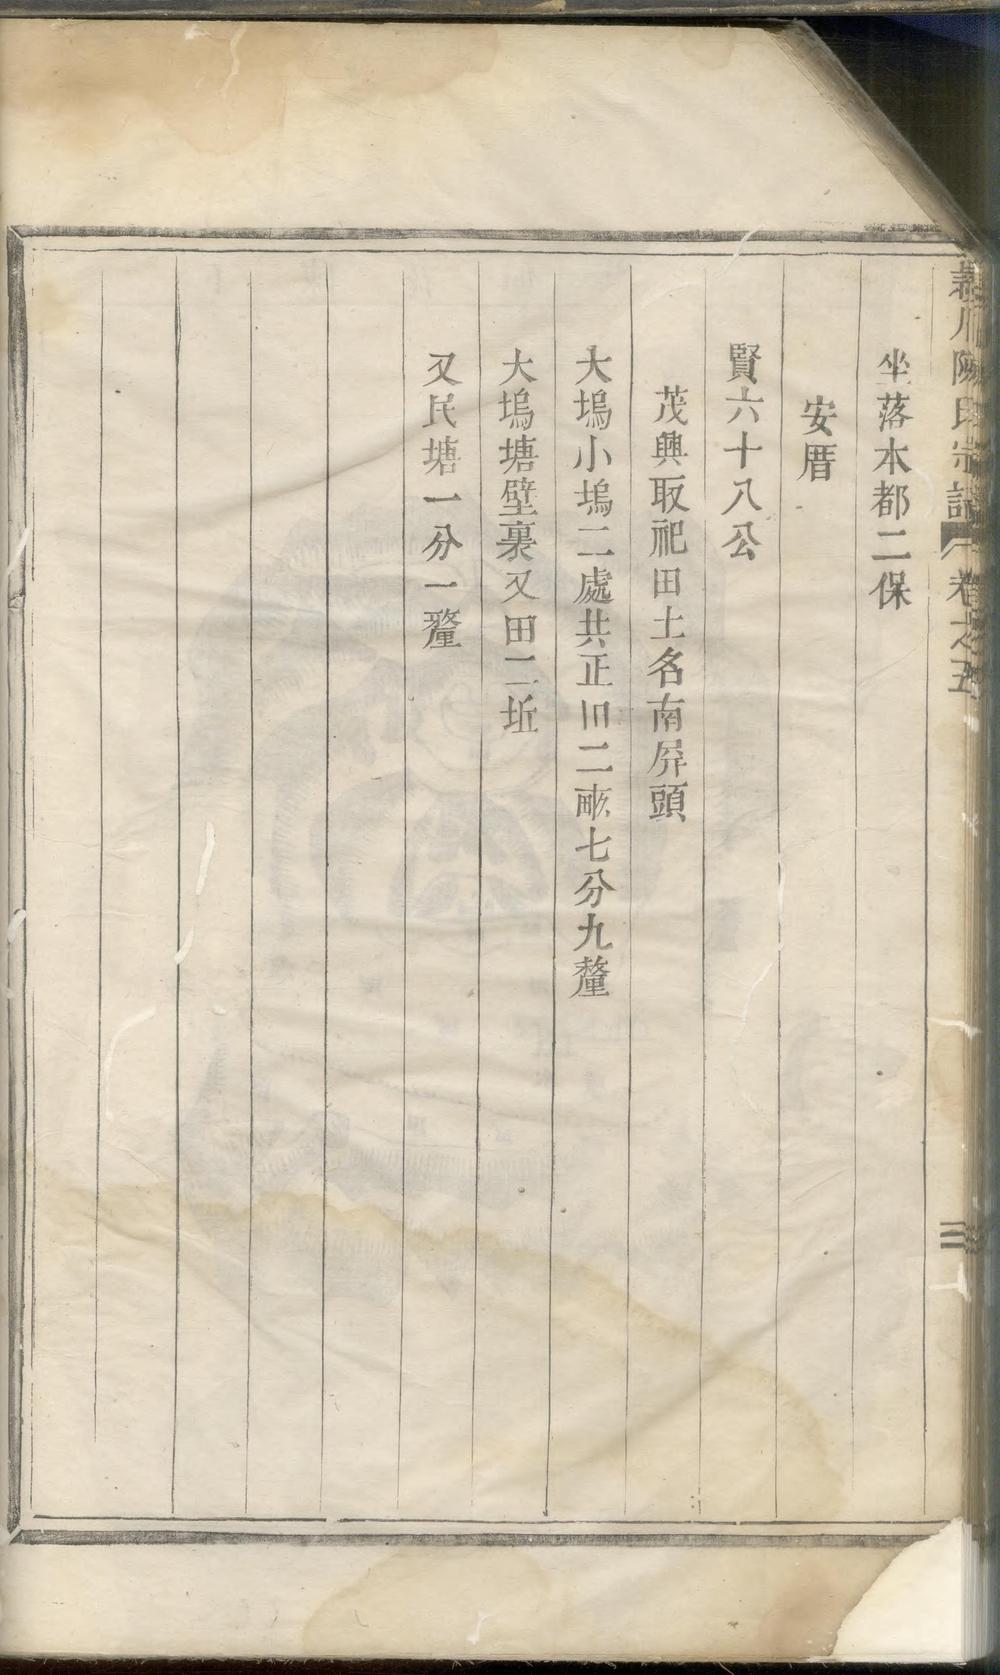 川陳氏宗譜 卷之五
坐落本都二保
安厝
賢六十八公
茂興取祀田土名南屏頭
大塢小塢二處共正田二畝七分九釐
大塢塘壁裏又田二坵
又民塘一分一釐